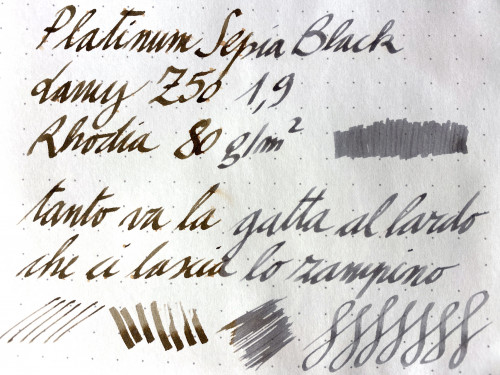 Platinum Sepia Black
Lamy Z50 1,9
Rhodia 80 g/m²
tanto va la gatta al lardo
che ci lascia lo zampino